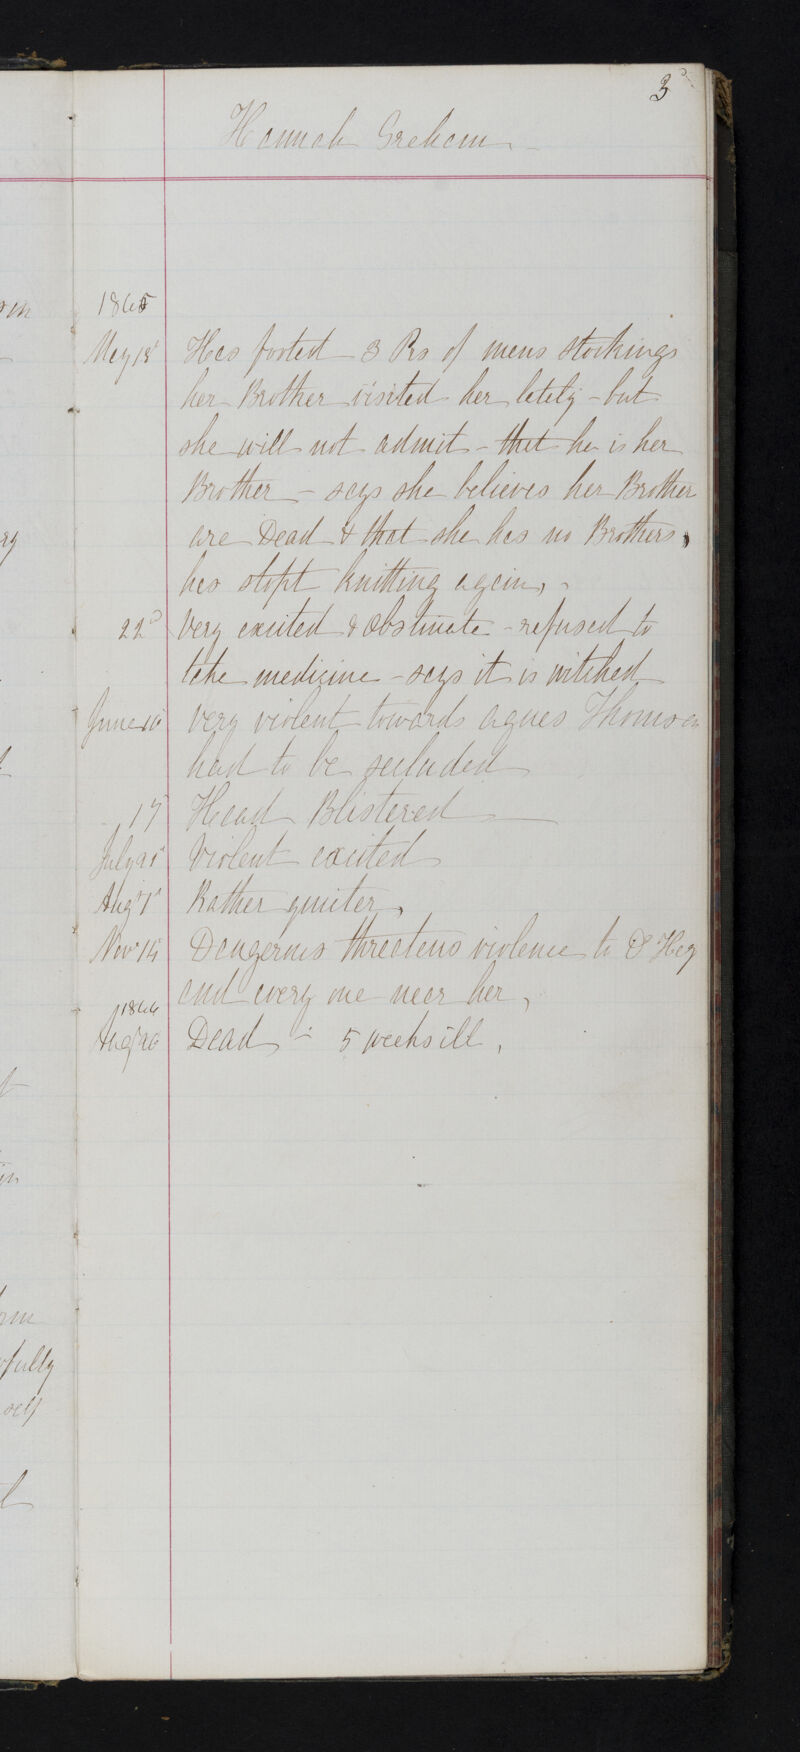 3
Hannah Graham
1865
May 18 Has footed 3 Prs of mens stockings
her Brother visited her lately - but
she will not admit - that he is her
Brother - says she believes her Brother
are Dead & that she has no Brothers,
has stopt knitting again,
22 Very excited & obstinate - refused to
take medicine - says it is witched
June 10 very violent towards agnes Thomson
had to be secluded
17 Head Blistered
July Violent excited
Aug 1 Rather quieter,
Nov 14 Dangerous threatens violence to Hay
and every one near her,
1866
Aug Dead - 5 weeks ill,
fully
self